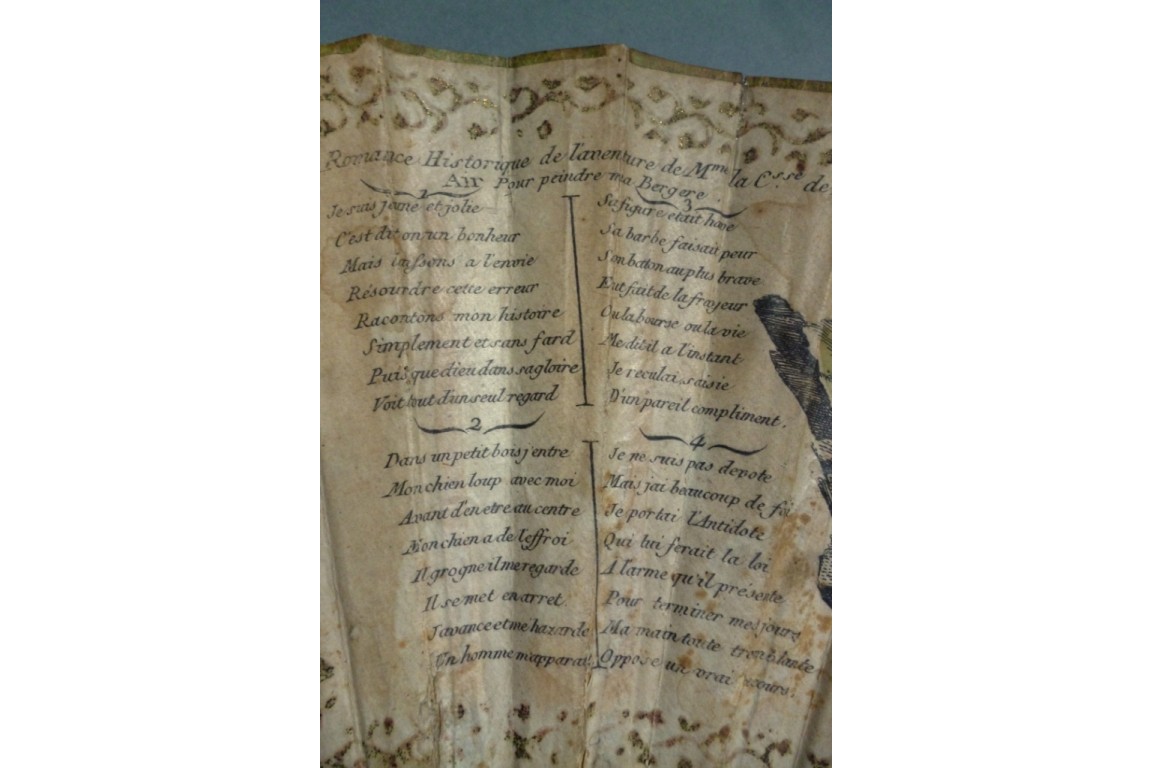 Romance Historique de l'aventure de Mme la Csse de
Air Pour peindre ma Bergere.
1
Je suis jeune et jolie
C'est dit on un bonheur
Mais laissons a l'envie
Résourdre cette erreur
Racontons mon histoire
Simplement et sans fard
Puis que dieu dans sa gloire
Voit tout d'un seul regard
2
Dans un petit bois j'entre
Mon chien loup avec moi
Avant d'en etre au centre
Mon chien a de l'effroi
Il grogne il me regarde
Il se met en arret.
J'avance et me hazarde
Un homme m'apparait.
3
Sa figure etait have
Sa barbe faisait peur
Son baton au plus brave
Eut fait de la frayeur
Ou la bourse ou la vie
Me dit il a l'instant
Je reculai saisie
D'un pareil compliment.
4
Je ne suis pas devote
Mais j'ai beaucoup de foi
Je portai l'Antidote
Qui lui ferait la loi
A l'arme qu'il présente
Pour terminer mes jours
Ma main toute tremblante
Oppose un vrai secours.